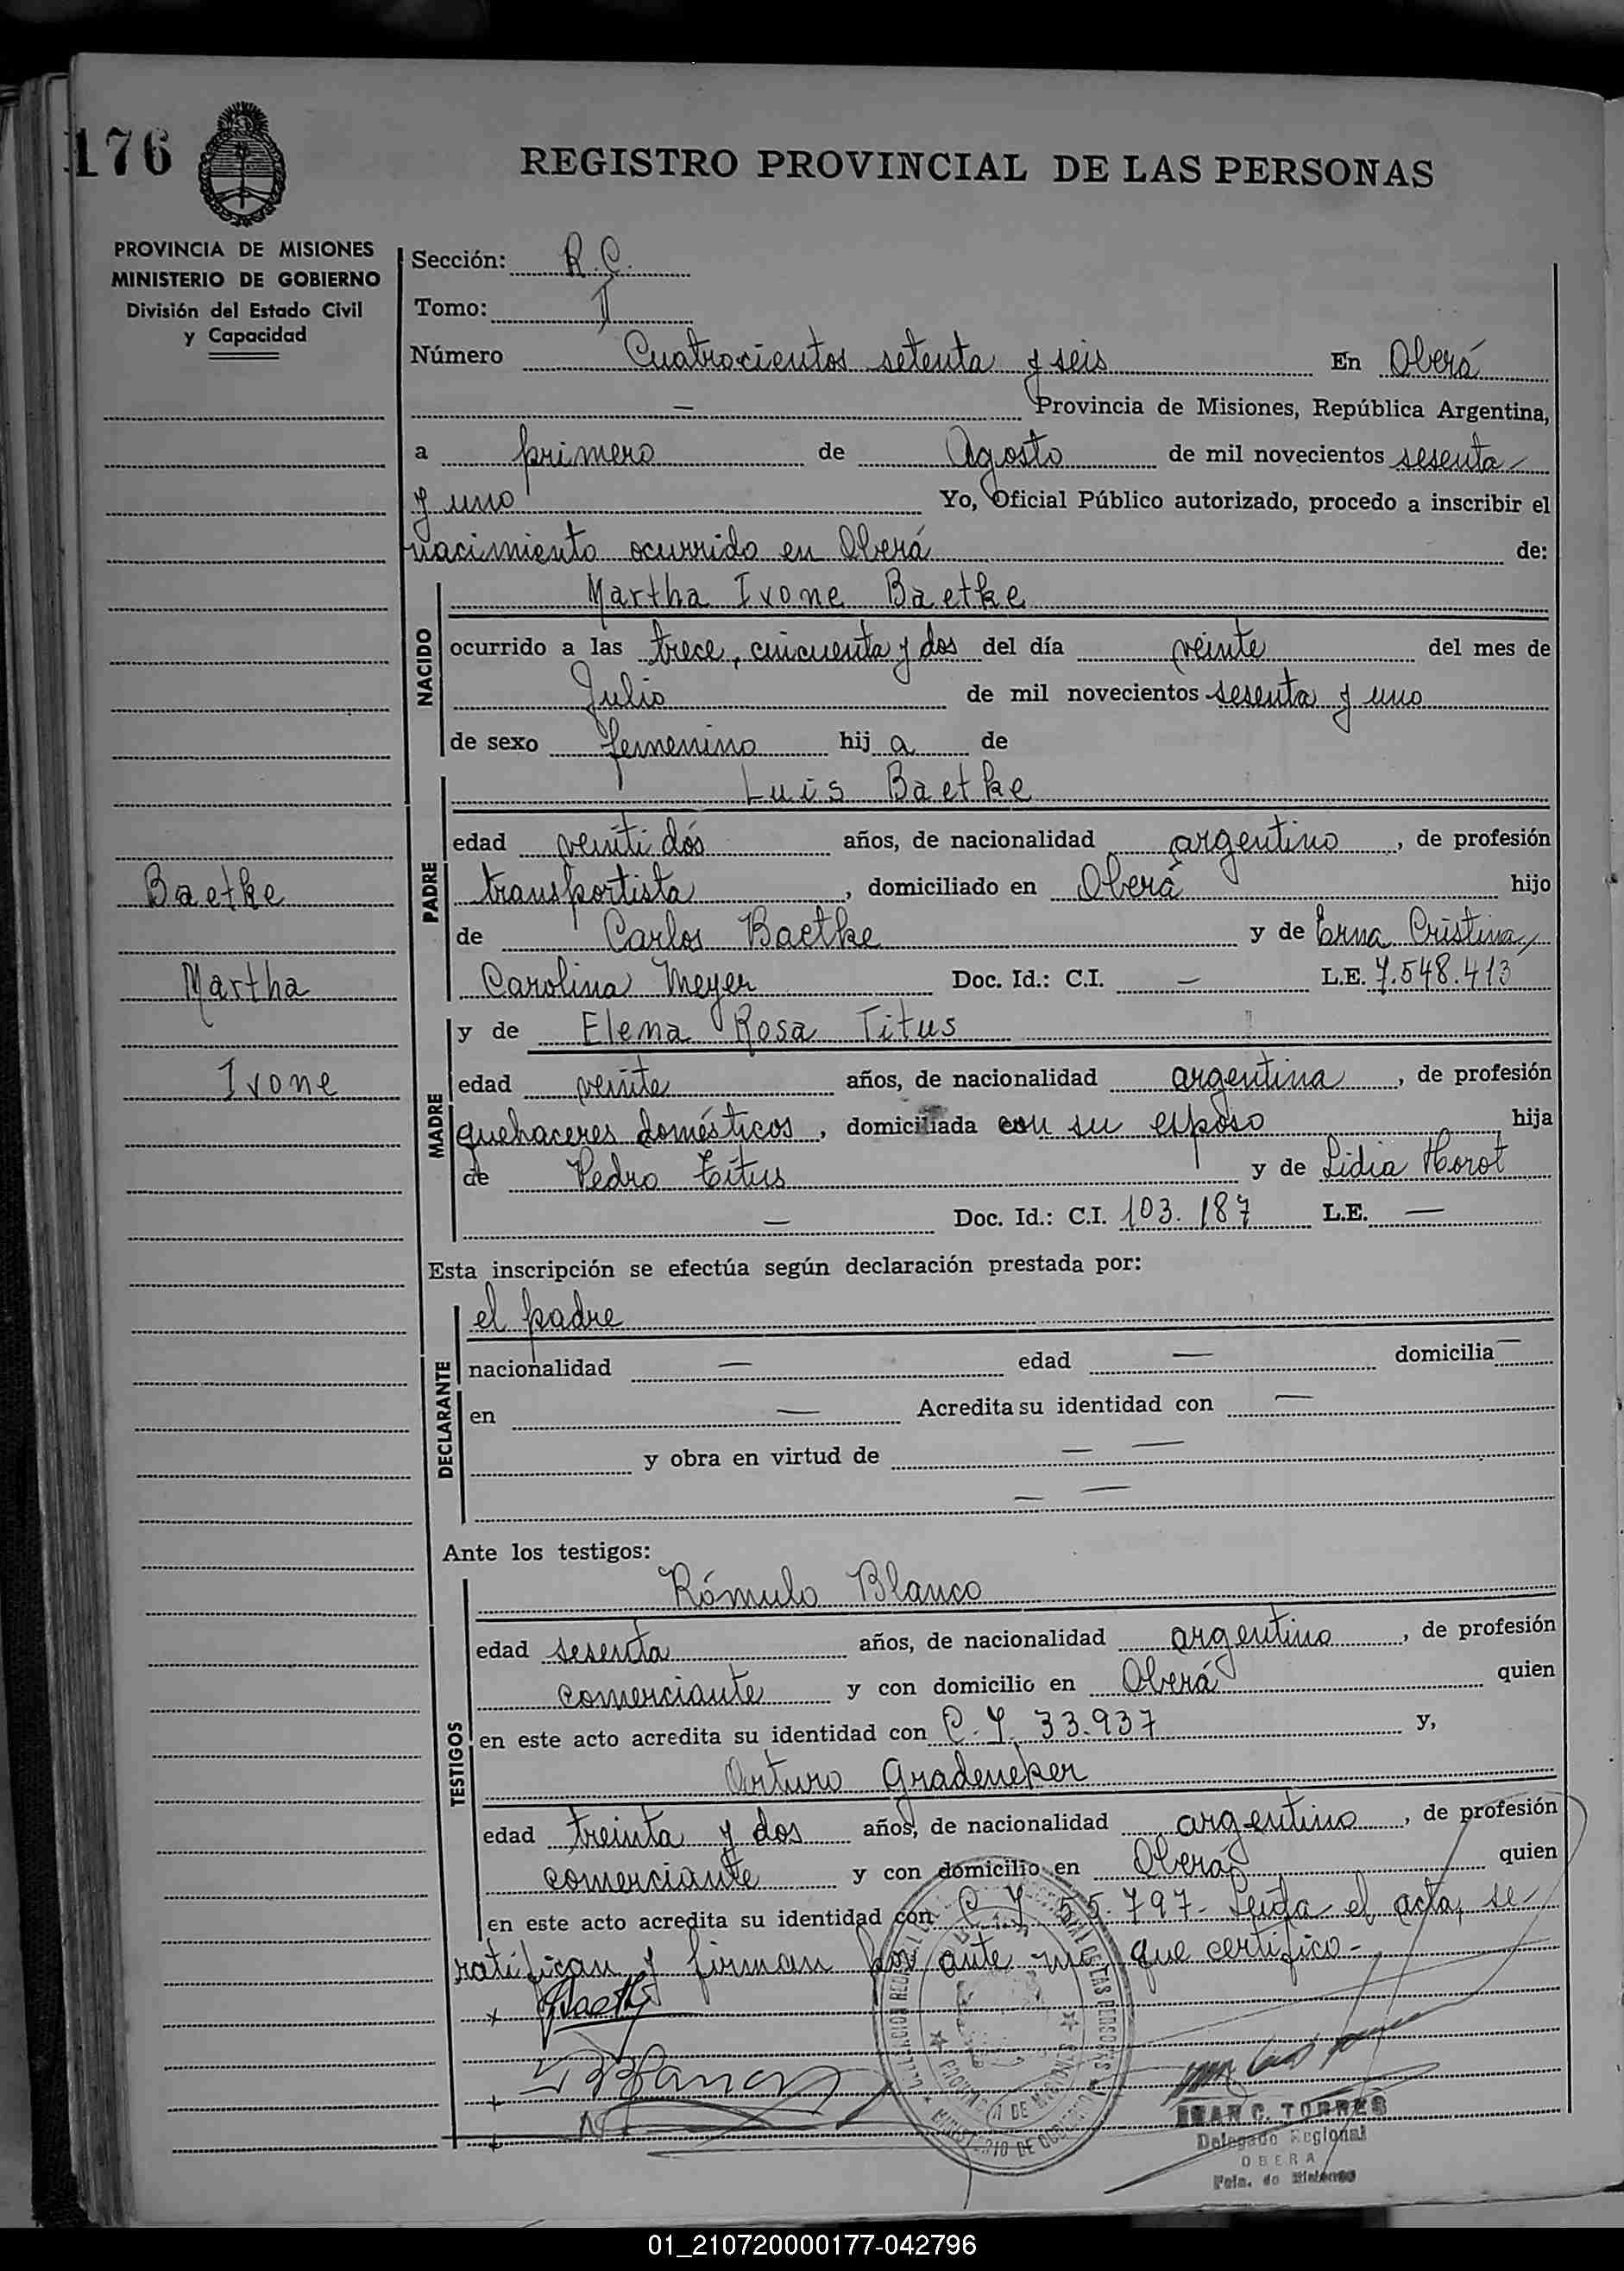 176
REGISTRO PROVINCIAL DE LAS PERSONAS
PROVINCIA DE MISIONES
MINISTERIO DE GOBIERNO
División del Estado Civil
y Capacidad
Sección: R.C.
Tomo: II
Número Cuatrocientos setenta y seis En Oberá
— Provincia de Misiones, República Argentina,
a primero de Agosto de mil novecientos sesenta
y uno Yo, Oficial Público autorizado, procedo a inscribir el
nacimiento ocurrido en Oberá de:
NACIDO
Martha Ivone Baetke
ocurrido a las trece, cincuenta y dos del día veinte del mes de
Julio de mil novecientos sesenta y uno
de sexo femenino hij a de
PADRE
Luis Baetke
edad veinti dós años, de nacionalidad argentino, de profesión
transportista, domiciliado en Oberá hijo
de Carlos Baetke y de Erna Cristina
Carolina Meyer Doc. Id.: C.I. — L.E. 7.548.413
Baetke
Martha
Ivone
MADRE
y de Elena Rosa Titus
edad veinte años, de nacionalidad argentina, de profesión
quehaceres domésticos, domiciliada con su esposo hija
de Pedro Titus y de Lidia Horot
— Doc. Id.: C.I. 103.187 L.E. —
Esta inscripción se efectúa según declaración prestada por:
DECLARANTE
el padre
nacionalidad — edad — domicilia —
en — Acredita su identidad con —
y obra en virtud de — —
— —
Ante los testigos:
TESTIGOS
Rómulo Blanco
edad sesenta años, de nacionalidad argentino, de profesión
comerciante y con domicilio en Oberá quien
en este acto acredita su identidad con C.I. 33.937 y,
Arturo Gradeneker
edad treinta y dos años, de nacionalidad argentino, de profesión
comerciante y con domicilio en Oberá quien
en este acto acredita su identidad con C.I. 55.797- Leída el acta, se
ratifican y firman por ante mí, que certifico-
PROVINCIA DE MISIONES
MINISTERIO DE GOBIERNO
JUAN C. TORRES
Delegado Regional
OBERA
Pcia. de Misiones
01_210720000177-042796